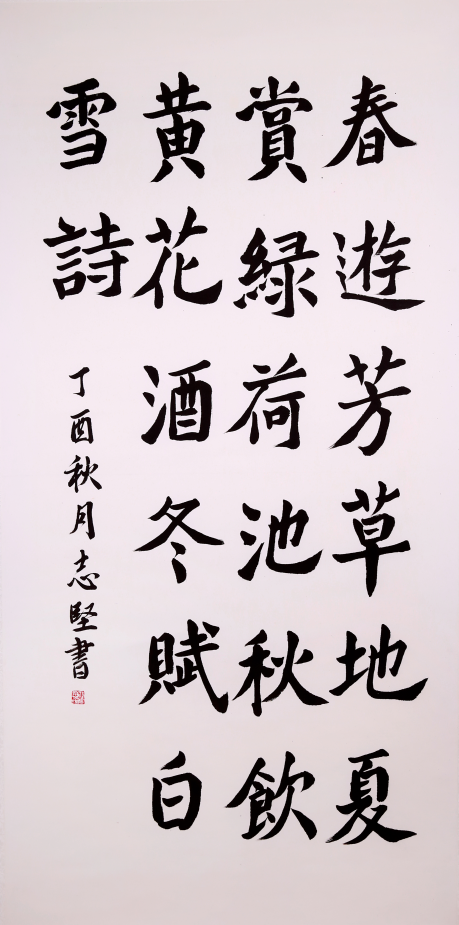 春遊芳草地夏
賞緑荷池秋飲
黄花酒冬賦白
雪詩
丁酉秋月志堅書